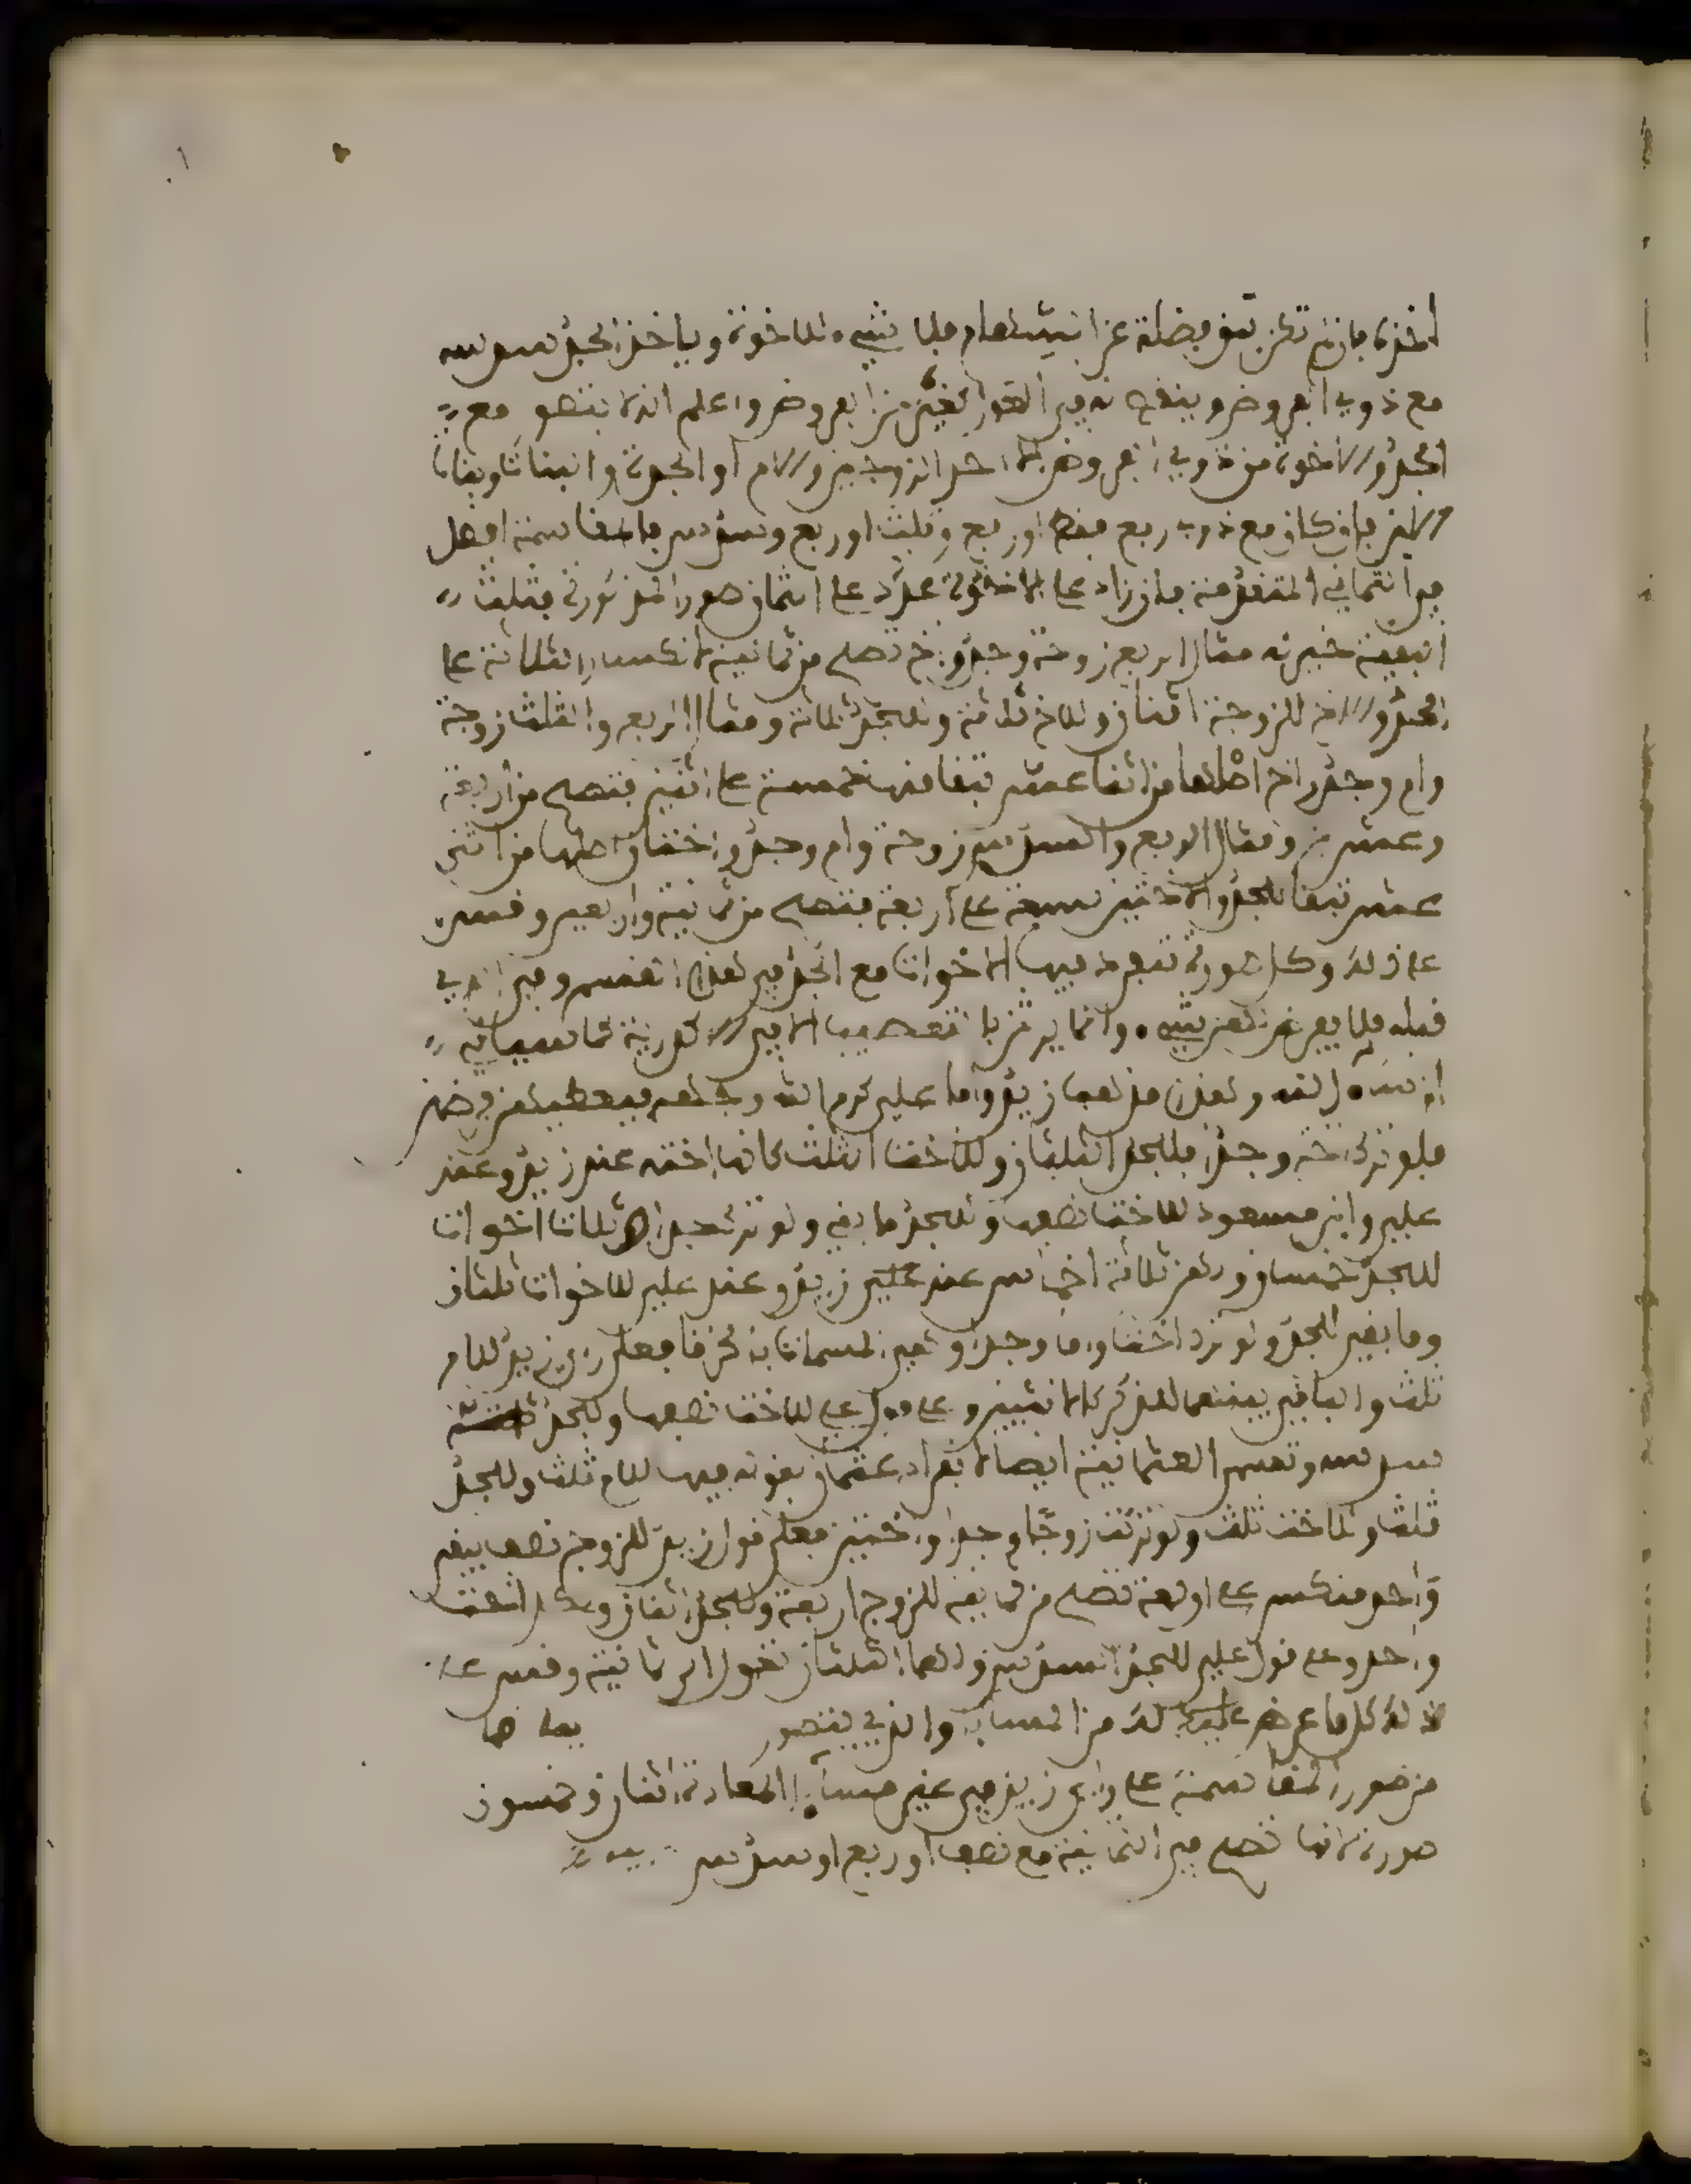 اخذه فان لم تكن تبق فضلة عن انتيشهام فلا شيء للاخوة وياخذ الجد سدسه
مع ذوي الفروض وينفع به في القدر الغير من الفروض واعلم انه لا ينتهو مع
الجد والاخوة من ذوي الفروض الا احد الزوجين والام او الجدة والبنات وبنات
الابن فان كان مع ذوي ربع فقط او ربع وثلث او ربع وسدس فالمقاسمة افضل
في الثماني المتقدمة فان زاد على الاخوة عدد على الثمان صور المذكورة فثلث
البقية خير له مثال الربع زوجة وجد واخ تصح من ثمانية لانكسار الثلاثة على
الجد والاخ للزوجة اثنان وللاخ ثلاثة وللجد ثلاثة ومثال الربع والثلث زوجة
وام وجد واخ اصلها من اثنا عشر تبقا منها خمسة على اثنين فتصح من اربعة
وعشرين ومثال الربع والسدس زوجة وام وجد واختان اصلها من اثني
عشر تبقا للجد والاختين سبعة على اربعة فتصح من ثمانية واربعين وقس
على ذلك وكل صورة تنفرد فيها الاخوات مع الجد في هذا القسم وفي الذي
قبله فلا يفرض لهن شيء وانما يرثن بالتعصيب الا في الاكدرية كما سياتي
ان شاء الله وهذا مذهب زيد واما علي كرم الله وجهه فيعطيهن فرضهن
فلو ترك اخته وجد فللجد الثلثان وللاخت الثلث كانها اخته عند زيد وعند
علي وابن مسعود للاخت نصف وللجد ما بقي ولو ترك جدا وثلاث اخوات
للجد خمسان ولهن ثلاثة اخماس عند زيد وعند علي للاخوات ثلثان
وما بقي للجد ولو ترك اختا واما وجدا وهي المسمات بالخرقا فعلى راي زيد للام
ثلث والباقي بينهما للذكر كالانثيين وعلى قول علي للاخت نصف وللجد
سدس وتسمى العثمانية ايضا لانفراد عثمان بقوله فيها للام ثلث وللجد
ثلث وللاخت ثلث ولو تركت زوجا وجدا واختين فعلى قول زيد للزوج نصف يبقى
واحد منكسر على اربعة تصح من ثمانية للزوج اربعة وللجد اثنان ولكل اخت
واحد وعلى قول علي للجد السدس ولهما الثلثان تعول الى ثمانية وقس على
ذلك كل ما عرض عليك لك من المسائل والذي يتصور فيها
من صور المقاسمة على راي زيد في غير مسائل المعادة اثنان وخمسون
صورة لانها تصح في الثمانية مع نصف او ربع او سدس